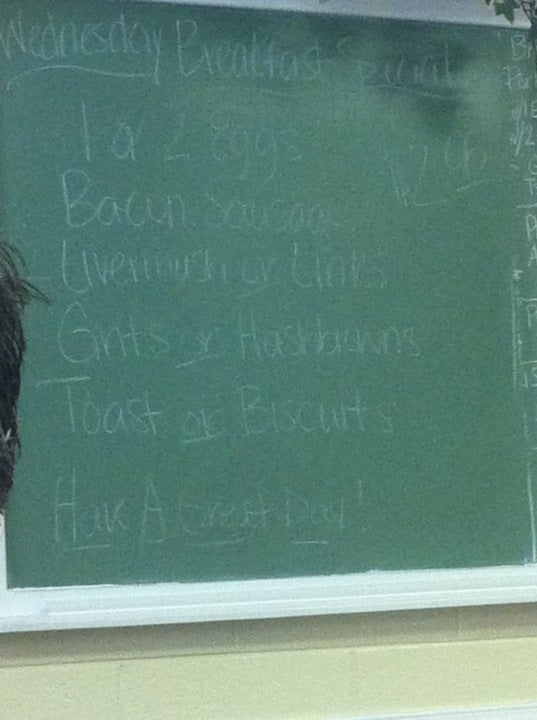 Wednesday Breakfast Special
1 or 2 Eggs
Bacon Sausage
Livermush or Links
Grits or Hashbrowns
Toast or Biscuits
Have A Great Day!